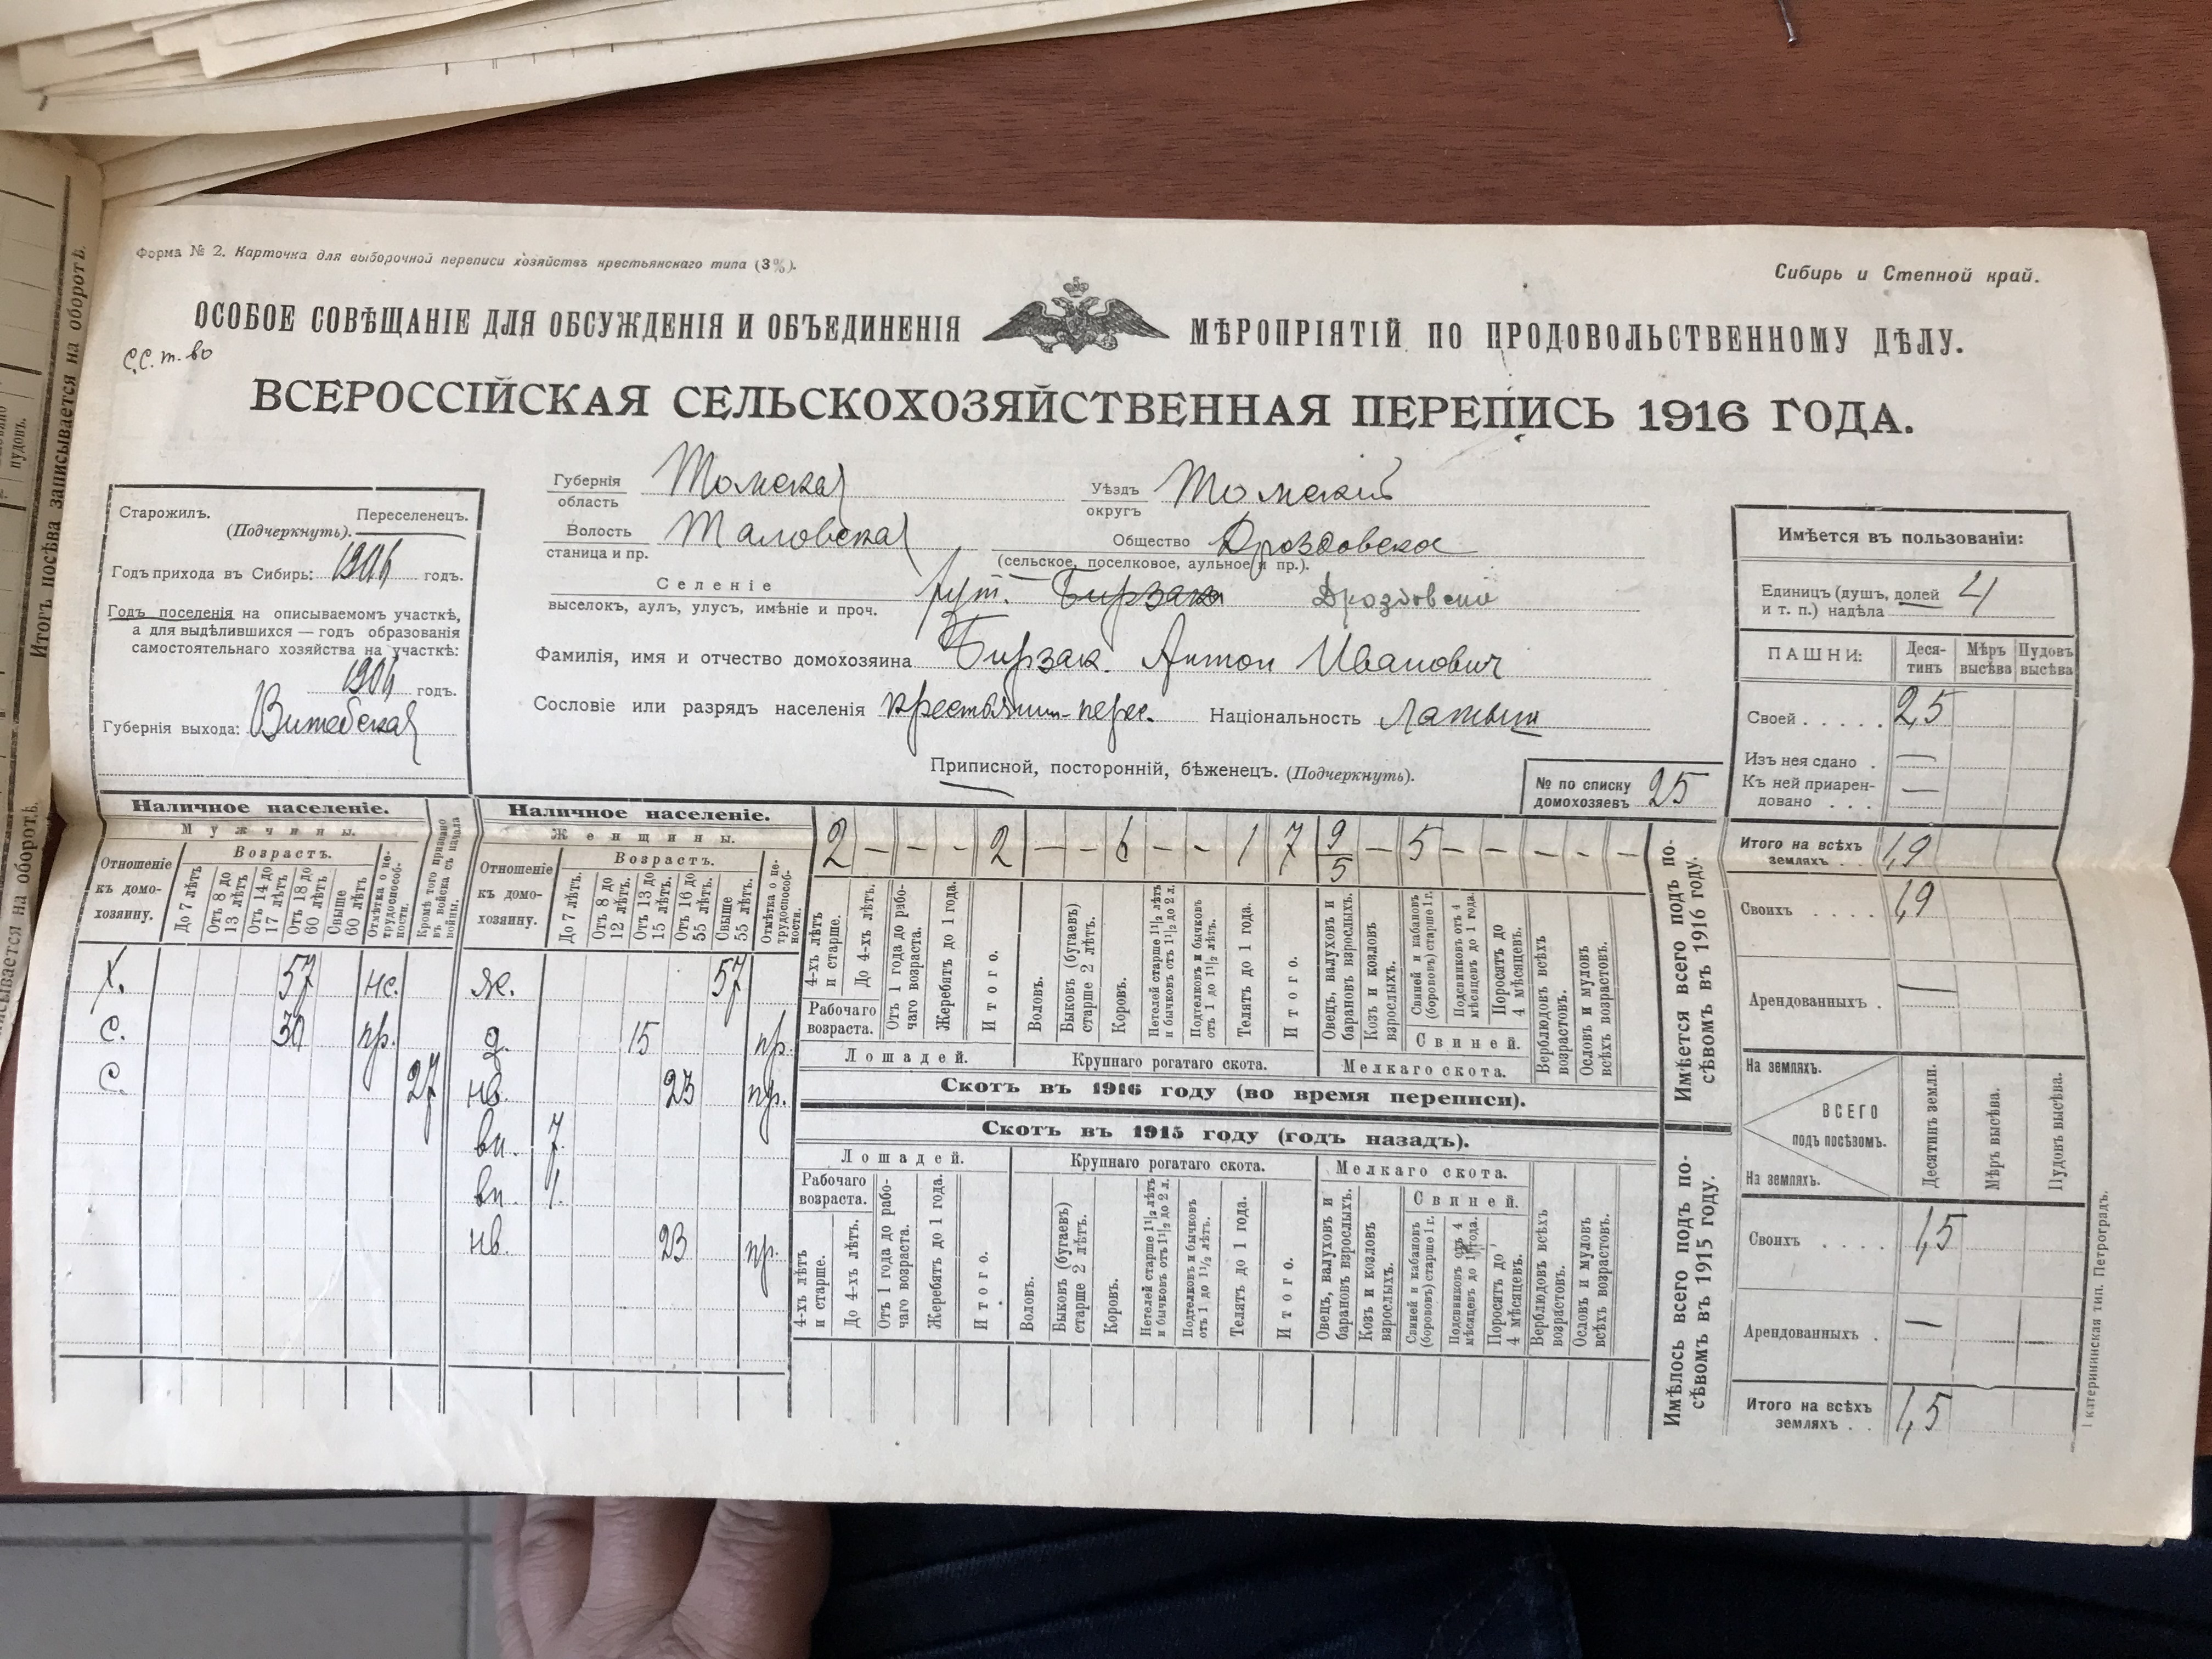 Форма № 2. Карточка для выборочной переписи хозяйствъ крестьянскаго типа (3%).
Сибирь и Степной край.
ОСОБОЕ СОВѢЩАНІЕ ДЛЯ ОБСУЖДЕНІЯ И ОБЪЕДИНЕНІЯ МѢРОПРІЯТІЙ ПО ПРОДОВОЛЬСТВЕННОМУ ДѢЛУ.
С.С. т-во
ВСЕРОССІЙСКАЯ СЕЛЬСКОХОЗЯЙСТВЕННАЯ ПЕРЕПИСЬ 1916 ГОДА.
Старожилъ. Переселенецъ.
(Подчеркнуть).
Годъ прихода въ Сибирь: годъ.
Годъ поселенія на описываемомъ участкѣ,
а для выдѣлившихся — годъ образованія
самостоятельнаго хозяйства на участкѣ:
годъ.
Губернія выхода: Витебская
Губернія Томская
область
Уѣздъ Томскій
округъ
Волость Таловская
станица и пр.
Общество Дроздовское
(сельское, поселковое, аульное и пр.).
Селеніе хут. Бирзак Дроздовский
выселокъ, аулъ, улусъ, имѣніе и проч.
Фамилія, имя и отчество домохозяина Бирзак. Антон Иванович
Сословіе или разрядъ населенія крестьянин-перес. Національность латыш
Приписной, посторонній, бѣженецъ. (Подчеркнуть).
№ по списку
домохозяевъ 25
Имѣется въ пользованіи:
Единицъ (душъ, долей
и т. п.) надѣла 4
ПАШНИ: Деся-
тинъ Мѣръ
высѣва Пудовъ
высѣва
Своей . . . . . 2,5
Изъ нея сдано . —
Къ ней приарен-
довано . . . —
Итого на всѣхъ
земляхъ . . 1,9
Своихъ . . . . 1,9
Арендованныхъ . —
На земляхъ.
ВСЕГО
подъ посѣвомъ.
На земляхъ.
Десятинъ земли.
Мѣръ высѣва.
Пудовъ высѣва.
Своихъ . . . . 1,5
Арендованныхъ . —
Итого на всѣхъ
земляхъ . . 1,5
Имѣется всего подъ по-
сѣвомъ въ 1916 году.
Имѣлось всего подъ по-
сѣвомъ въ 1915 году.
Наличное населеніе.
Мужчины.
Отношеніе
къ домо-
хозяину.
Возрастъ.
До 7 лѣтъ
Отъ 8 до
13 лѣтъ
Отъ 14 до
17 лѣтъ
Отъ 18 до
60 лѣтъ
Свыше
60 лѣтъ
Отмѣтка о не-
трудоспособ-
ности.
Кромѣ того призвано
въ войска съ начала
войны.
Х. 57 нс.
С. 30 пр.
С. 27
Наличное населеніе.
Женщины.
Отношеніе
къ домо-
хозяину.
Возрастъ.
До 7 лѣтъ.
Отъ 8 до
12 лѣтъ.
Отъ 13 до
15 лѣтъ.
Отъ 16 до
55 лѣтъ.
Свыше
55 лѣтъ.
Отмѣтка о не-
трудоспособ-
ности.
ж. 57
д. 15 пр.
нв. 23 пр.
вн. 7.
вн. 1.
нв. 23 пр.
2 — - - 2 — - 6 - - 1 7 9/5 — 5 — - - - —
4-хъ лѣтъ
и старше.
До 4-хъ лѣтъ.
Рабочаго
возраста.
Отъ 1 года до рабо-
чаго возраста.
Жеребятъ до 1 года.
Итого.
Лошадей.
Воловъ.
Быковъ (бугаевъ)
старше 2 лѣтъ.
Коровъ.
Нетелей старше 1½ лѣтъ
и бычковъ отъ 1½ до 2 л.
Подтелковъ и бычковъ
отъ 1 до 1½ лѣтъ.
Телятъ до 1 года.
Итого.
Крупнаго рогатаго скота.
Овецъ, валуховъ и
барановъ взрослыхъ.
Козъ и козловъ
взрослыхъ.
Свиней и кабановъ
(борововъ) старше 1 г.
Подсвинковъ отъ 4
мѣсяцевъ до 1 года.
Поросятъ до
4 мѣсяцевъ.
Свиней.
Мелкаго скота.
Верблюдовъ всѣхъ
возрастовъ.
Ословъ и муловъ
всѣхъ возрастовъ.
Скотъ въ 1916 году (во время переписи).
Скотъ въ 1915 году (годъ назадъ).
Лошадей.
Крупнаго рогатаго скота.
Мелкаго скота.
Рабочаго
возраста.
Свиней.
4-хъ лѣтъ
и старше.
До 4-хъ лѣтъ.
Отъ 1 года до рабо-
чаго возраста.
Жеребятъ до 1 года.
Итого.
Воловъ.
Быковъ (бугаевъ)
старше 2 лѣтъ.
Коровъ.
Нетелей старше 1½ лѣтъ
и бычковъ отъ 1½ до 2 л.
Подтелковъ и бычковъ
отъ 1 до 1½ лѣтъ.
Телятъ до 1 года.
Итого.
Овецъ, валуховъ и
барановъ взрослыхъ.
Козъ и козловъ
взрослыхъ.
Свиней и кабановъ
(борововъ) старше 1 г.
Подсвинковъ отъ 4
мѣсяцевъ до 1 года.
Поросятъ до
4 мѣсяцевъ.
Верблюдовъ всѣхъ
возрастовъ.
Ословъ и муловъ
всѣхъ возрастовъ.
тип. Петроградъ.
Итогъ посѣва записывается на оборотѣ.
пудовъ.